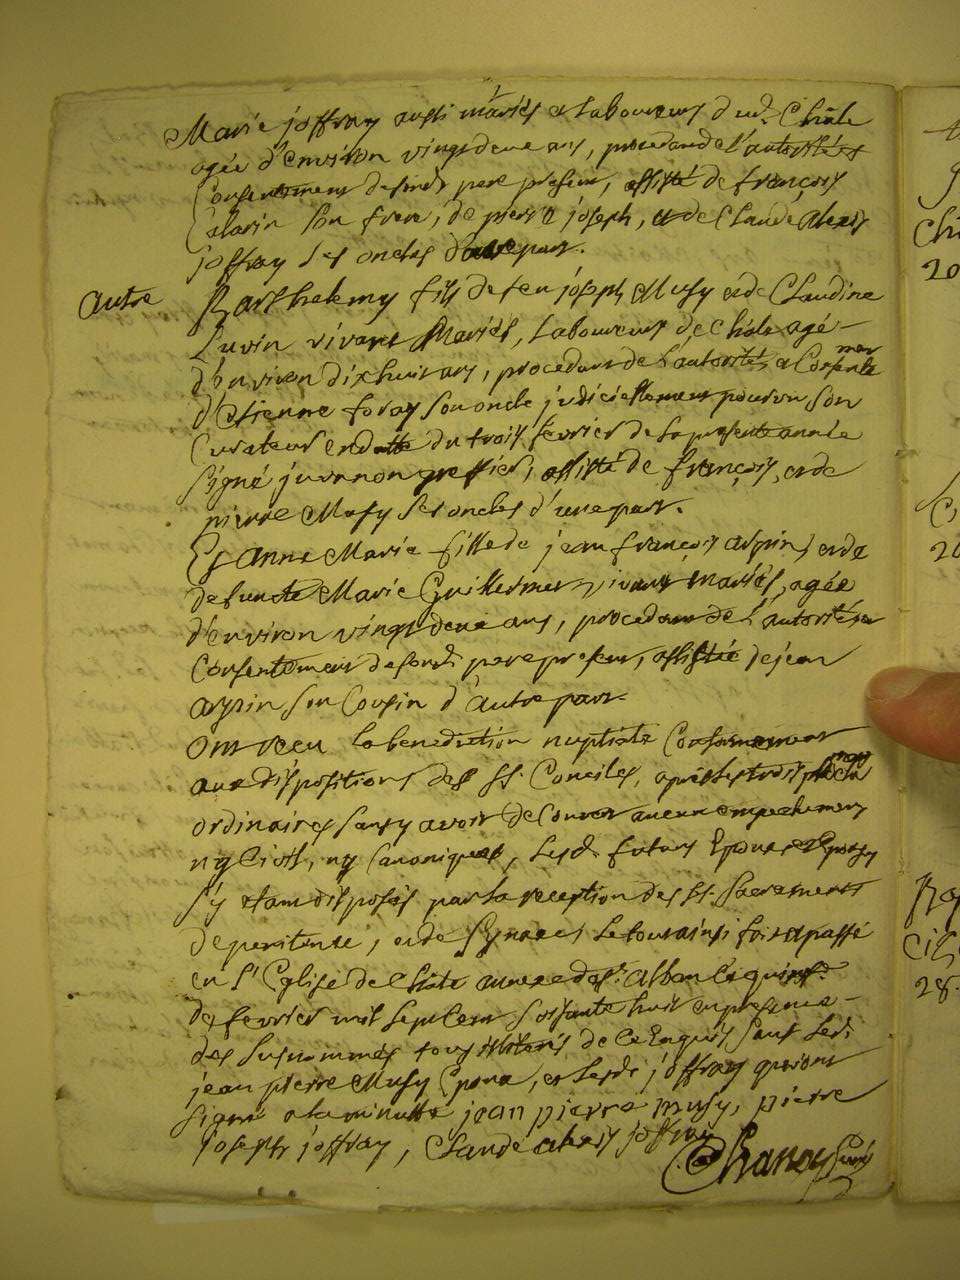 Marie joffray aussi mariés et Laboureurs dud. Chále
agée d'environ vingt deux ans, procedant de l'autorité et
Consentement de son dt pere present, assisté de françois
son frere, de pierre joseph, et de Claude alexis
joffray ses oncles d'autre part.
autre
Barthelemy fils de feu joseph Musy et de Claudine
Luvin vivans Mariés, Laboureurs de Chále agé
d'environ dix huit ans, procedant de l'autorité et Consente
ment
d'Etienne foray son oncle judiciellement pourvu son
Curateur en datte du trois fevrier de la presente année
signé juvanon greffier, assisté de françois, et de
pierre Musy ses oncles d'une part.
Et Anne Marie fille de jean françois arpin, et de
defuncte Marie Guillermet vivans mariés, agée
d'environ vingt deux ans, procedant de l'autorité et
Consentement de son dt pere present, assistée de jean
arpin son Cousin d'autre part.
Ont reçu la benediction nuptiale Conformement
aux dispositions des SS. Conciles, après les trois procla
mons
ordinaires sans y avoir decouvert aucun empechement
ny Civil, ny Canonique, Lesd. futurs Epoux et Epouses
s'y etant disposés par la reception des SS. Sacrements
de penitence, et de Synaxe Le tout ainsi fait et passé
en l'Eglise de Chále annexe de St. Alban Le
de fevrier mil sept cent soixante huit en presence
des susnommés tous illiterés de ce Enquis sauf led.
jean pierre Musy Epoux, et lesd. joffray qui ont
signé a la minutte jean pierre musy, pierre
joseph joffray, Claude alexis joffray
Chanay Curé